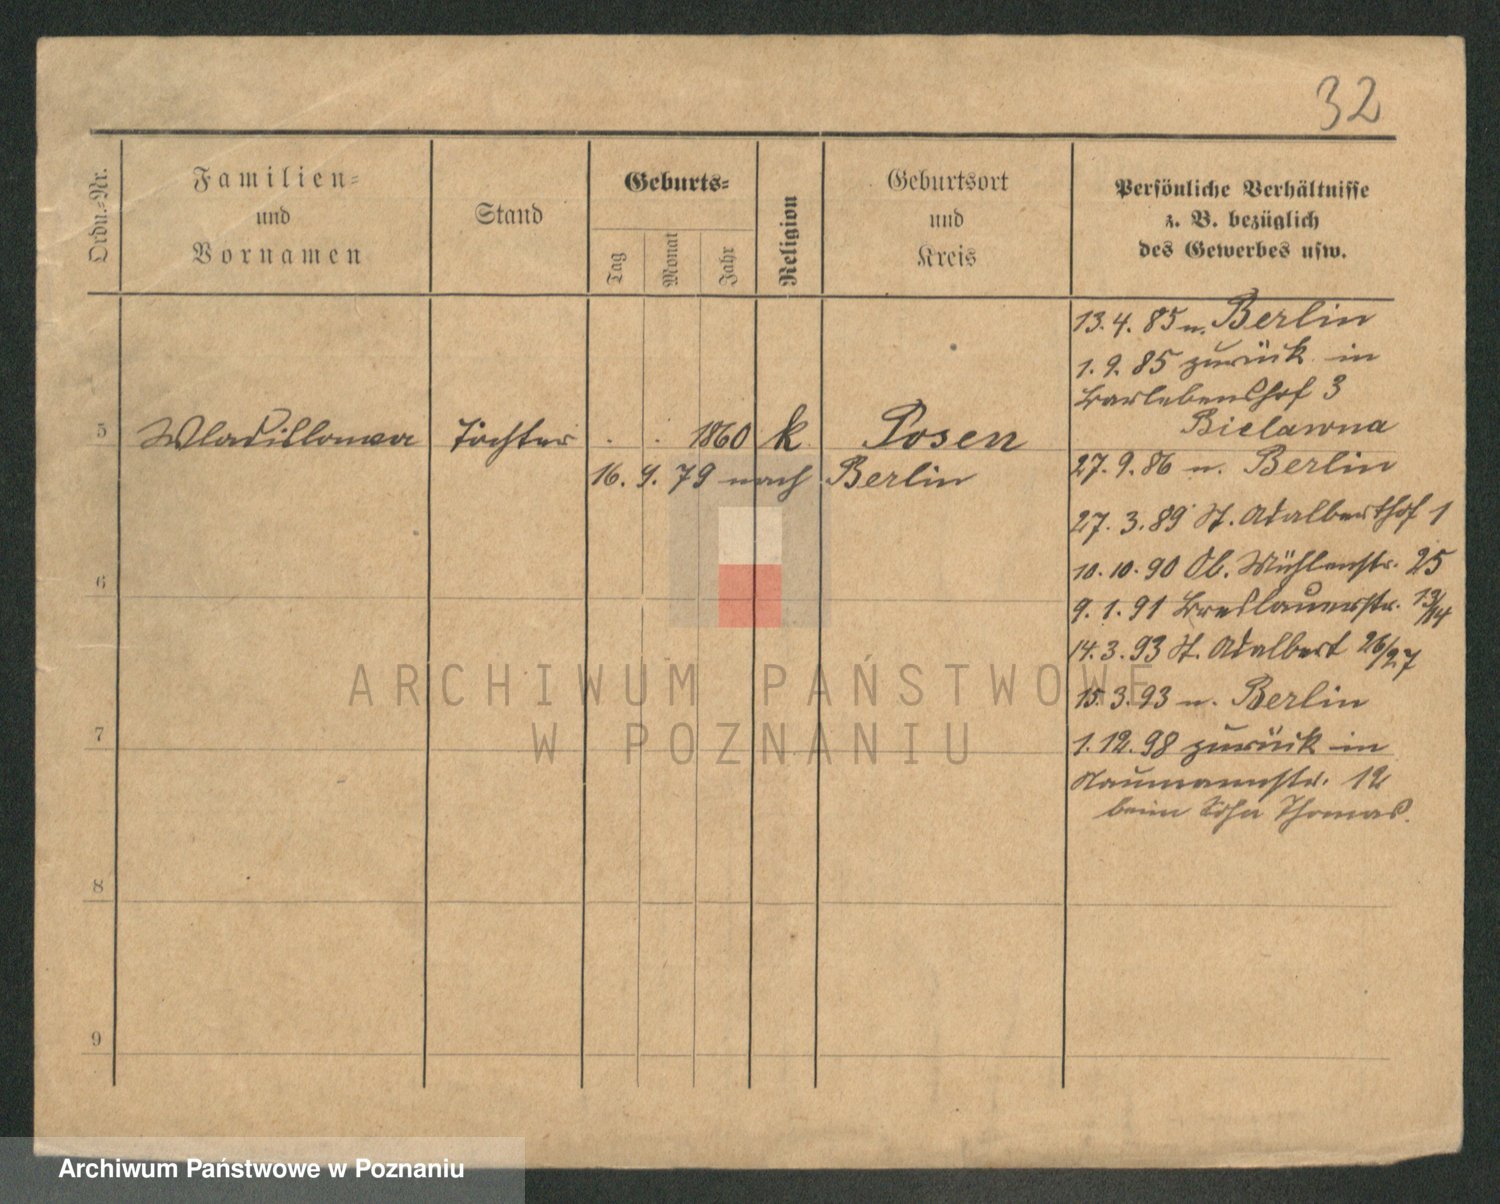 32
Ordn.-Nr.
Familien-
und
Vornamen
Stand
Geburts-
Tag
Monat
Jahr
Religion
Geburtsort
und
Kreis
Persönliche Verhältnisse
z. B. bezüglich
des Gewerbes usw.
13. 4. 85 n. Berlin
1. 9. 85 zurück in
Barlebenshof 3
Bielawna
5 Wladislowa Tochter . . 1860 k. Posen
16. 9. 79 nach Berlin
27. 9. 86 n. Berlin
27. 3. 89 St. Adalberthof 1
10. 10. 90 Ob. Mühlenstr. 25
9. 1. 91 Breslauerstr. 13/14
14. 3. 93 St. Adalbert 26/27
15. 3. 93 n. Berlin
1. 12. 98 zurück in
Naumannstr. 12
beim Sohn Thomas.
6
7
8
9
ARCHIWUM PAŃSTWOWE
W POZNANIU
Archiwum Państwowe w Poznaniu